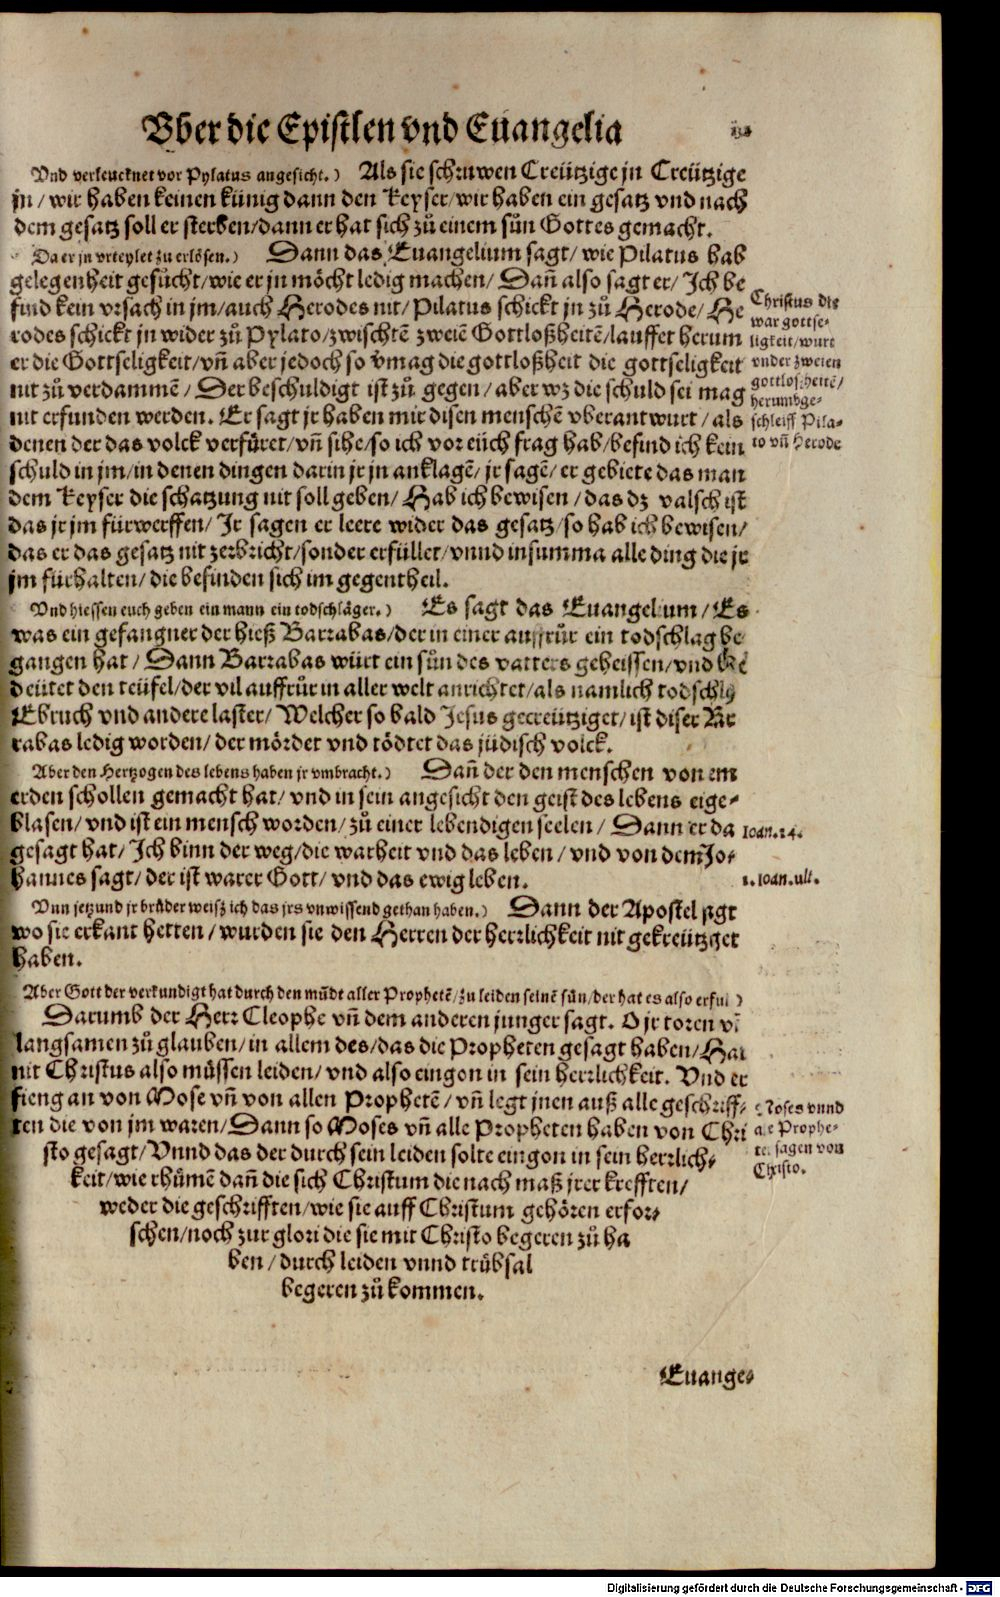 Vber die Epistlen vnd Euangelia
Vnd verleucknet vor Pylatus angesicht.) Als sie schruwen Creützige jn Creützige
jn / wir haben keinen künig dann den Keyser / wir haben ein gesatz vnd nach
dem gesatz soll er sterben / dann er hat sich zů einem sün Gottes gemacht.
Da er jn vrteylet zu erlösen.) Dann das Euangelium sagt / wie Pilatus hab
gelegenheit gesůcht / wie er jn möcht ledig machen / Dañ also sagt er / Ich be
find kein vrsach in jm / auch Herodes nit / Pilatus schickt jn zů Herode / He
rodes schickt jn wider zů Pylato / zwischtẽ zweiẽ Gottloßheitẽ / lauffet herum
er die Gottseligkeit / vñ aber jedoch so v̈mag die gottloßheit die gottseligkeit
nit zů verdammẽ / Der beschuldigt ist zů gegen / aber wz die schuld sei mag
nit erfunden werden. Er sagt jr haben mir disen menschẽ vberantwurt / als
denen der das volck verfüret / vñ sihe / so ich vor eüch frag hab / befind ich kein
schuld in jm / in denen dingen darin jr jn anklagẽ / jr sagẽ / er gebiete das man
dem Keyser die schatzung nit soll geben / Hab ich bewisen / das dz valsch ist
das jr jm fürwerffen / Ir sagen er leere wider das gesatz / so hab ich bewisen /
das er das gesatz nit zerbricht / sonder erfüllet / vnnd insumma alle ding die jr
jm fürhalten / die befinden sich im gegentheil.
Christus die
war gottse-
ligkeit / wurt
vnder zweien
gottlosheitẽ /
herumbge-
schleiff Pila-
to vñ Herode
Vnd hiessen euch geben ein mann ein todschläger.) Es sagt das Euangelium / Es
was ein gefangner der hieß Barrabas / der in einer auffrůr ein todschlag be
gangen hat / Dann Barrabas würt ein sün des vatters geheissen / vnd
deütet den teüfel / der vil auffrůr in aller welt anrichtet / als namlich todschlg
Ebruch vnd andere laster / Welcher so bald Jesus gecreütziget / ist diser Bar
rabas ledig worden / der mördet vnd tödtet das jüdisch volck.
Aber den Hertzogen des lebens haben jr vmbracht.) Dañ der den menschen von em
erden schollen gemacht hat / vnd in sein angesicht den geist des lebens eige-
blasen / vnd ist ein mensch worden / zů einer lebendigen seelen / Dann er da
gesagt hat / Ich binn der weg / die warheit vnd das leben / vnd von dem Jo-
hannes sagt / der ist warer Gott / vnd das ewig leben.
Ioan. 14.
1. Ioan. ult.
Nun jetzund jr brüder weisz ich das jrs vnwissend gethan haben.) Dann der Apostel sagt
wo sie erkant hetten / wurden sie den Herren der herrlichkeit nit gekreützget
haben.
Aber Gott der verkundigt hat durch den mũdt aller Prophetẽ / zu leiden seinẽ sün / der hat es also erful )
Darumb der Herr Cleophe vñ dem anderen junger sagt. O jr toren vñ
langsamen zů glauben / in allem des / das die Propheten gesagt haben / Hat
nit Christus also müssen leiden / vnd also eingon in sein herrlichkeit. Vnd er
fieng an von Mose vñ von allen Prophetẽ / vñ legt jnen auß alle geschriff-
ten die von jm waren / Dann so Moses vñ alle Propheten haben von Chri
sto gesagt / Vnnd das der durch sein leiden solte eingon in sein herrlich-
keit / wie rhümẽ dañ die sich Christum die nach maß jrer krefften /
weder die geschrifften / wie sie auff Christum gehören erfor-
schen / noch zur glori die sie mit Christo begeren zů ha
ben / durch leiden vnnd trübsal
begeren zů kommen.
Moses vnnd
ale Prophe-
tẽ sagen von
Christo.
Euange-
Digitalisierung gefördert durch die Deutsche Forschungsgemeinschaft - DFG